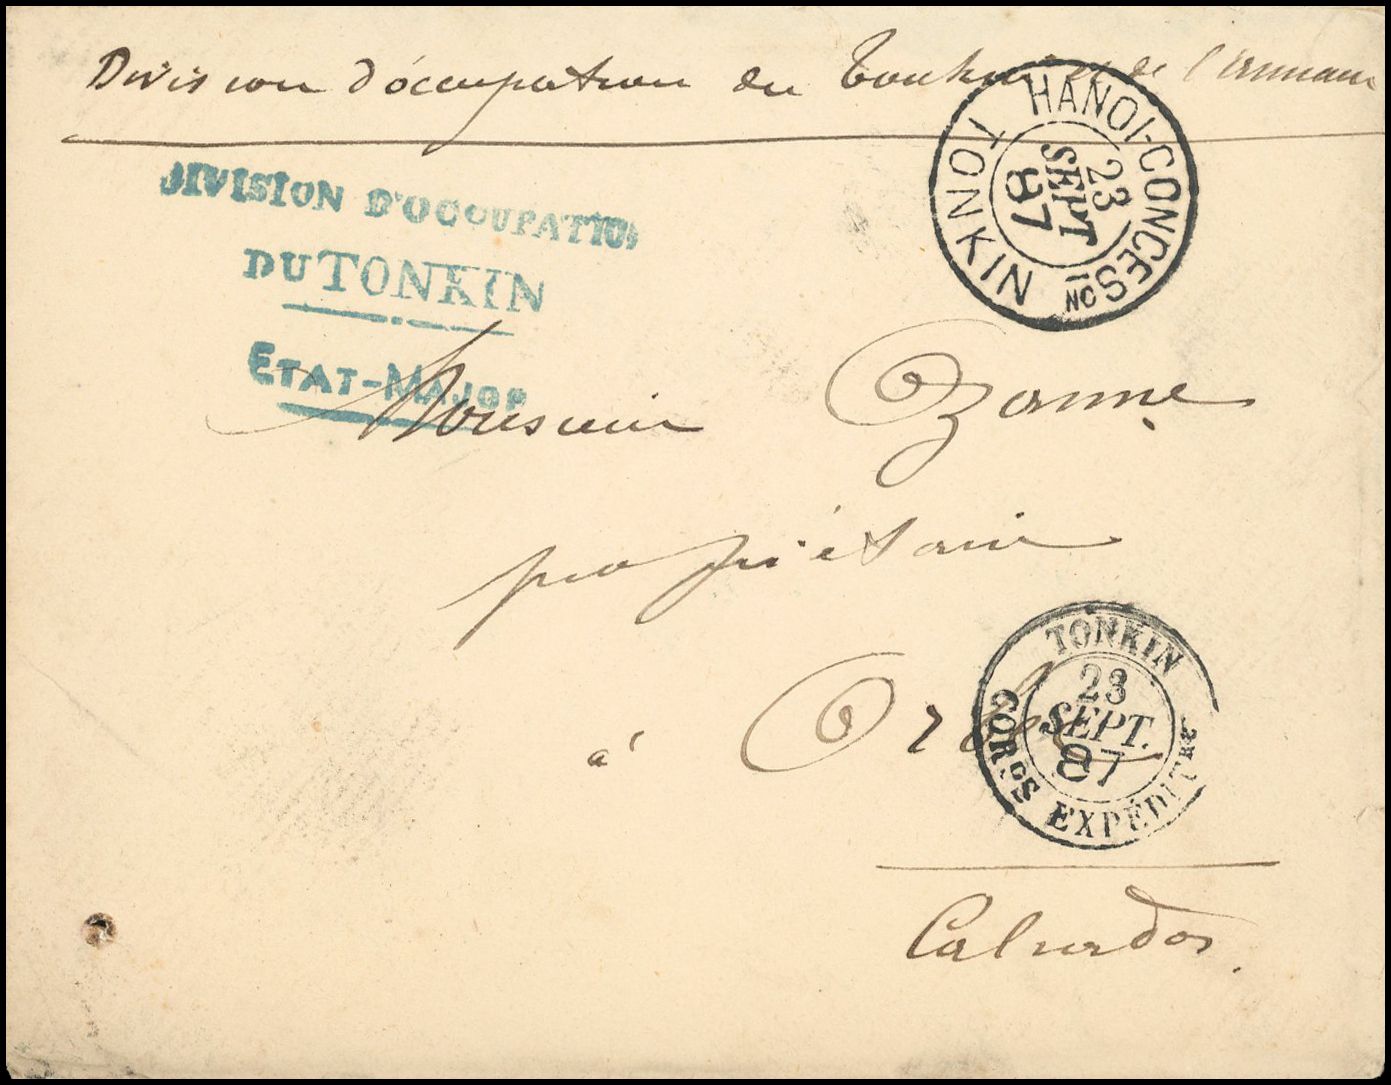 Division d'óccupation du Tonkin et de l'Annam
HANOI-CONCESSION
TONKIN
23
SEPT
87
DIVISION D'OCCUPATION
DU TONKIN
ETAT-MAJOR
Monsieur Ozanne
propriétaire
à Orbec
TONKIN
23
SEPT.
87
CORPS EXPÉDITRE
Calvados.